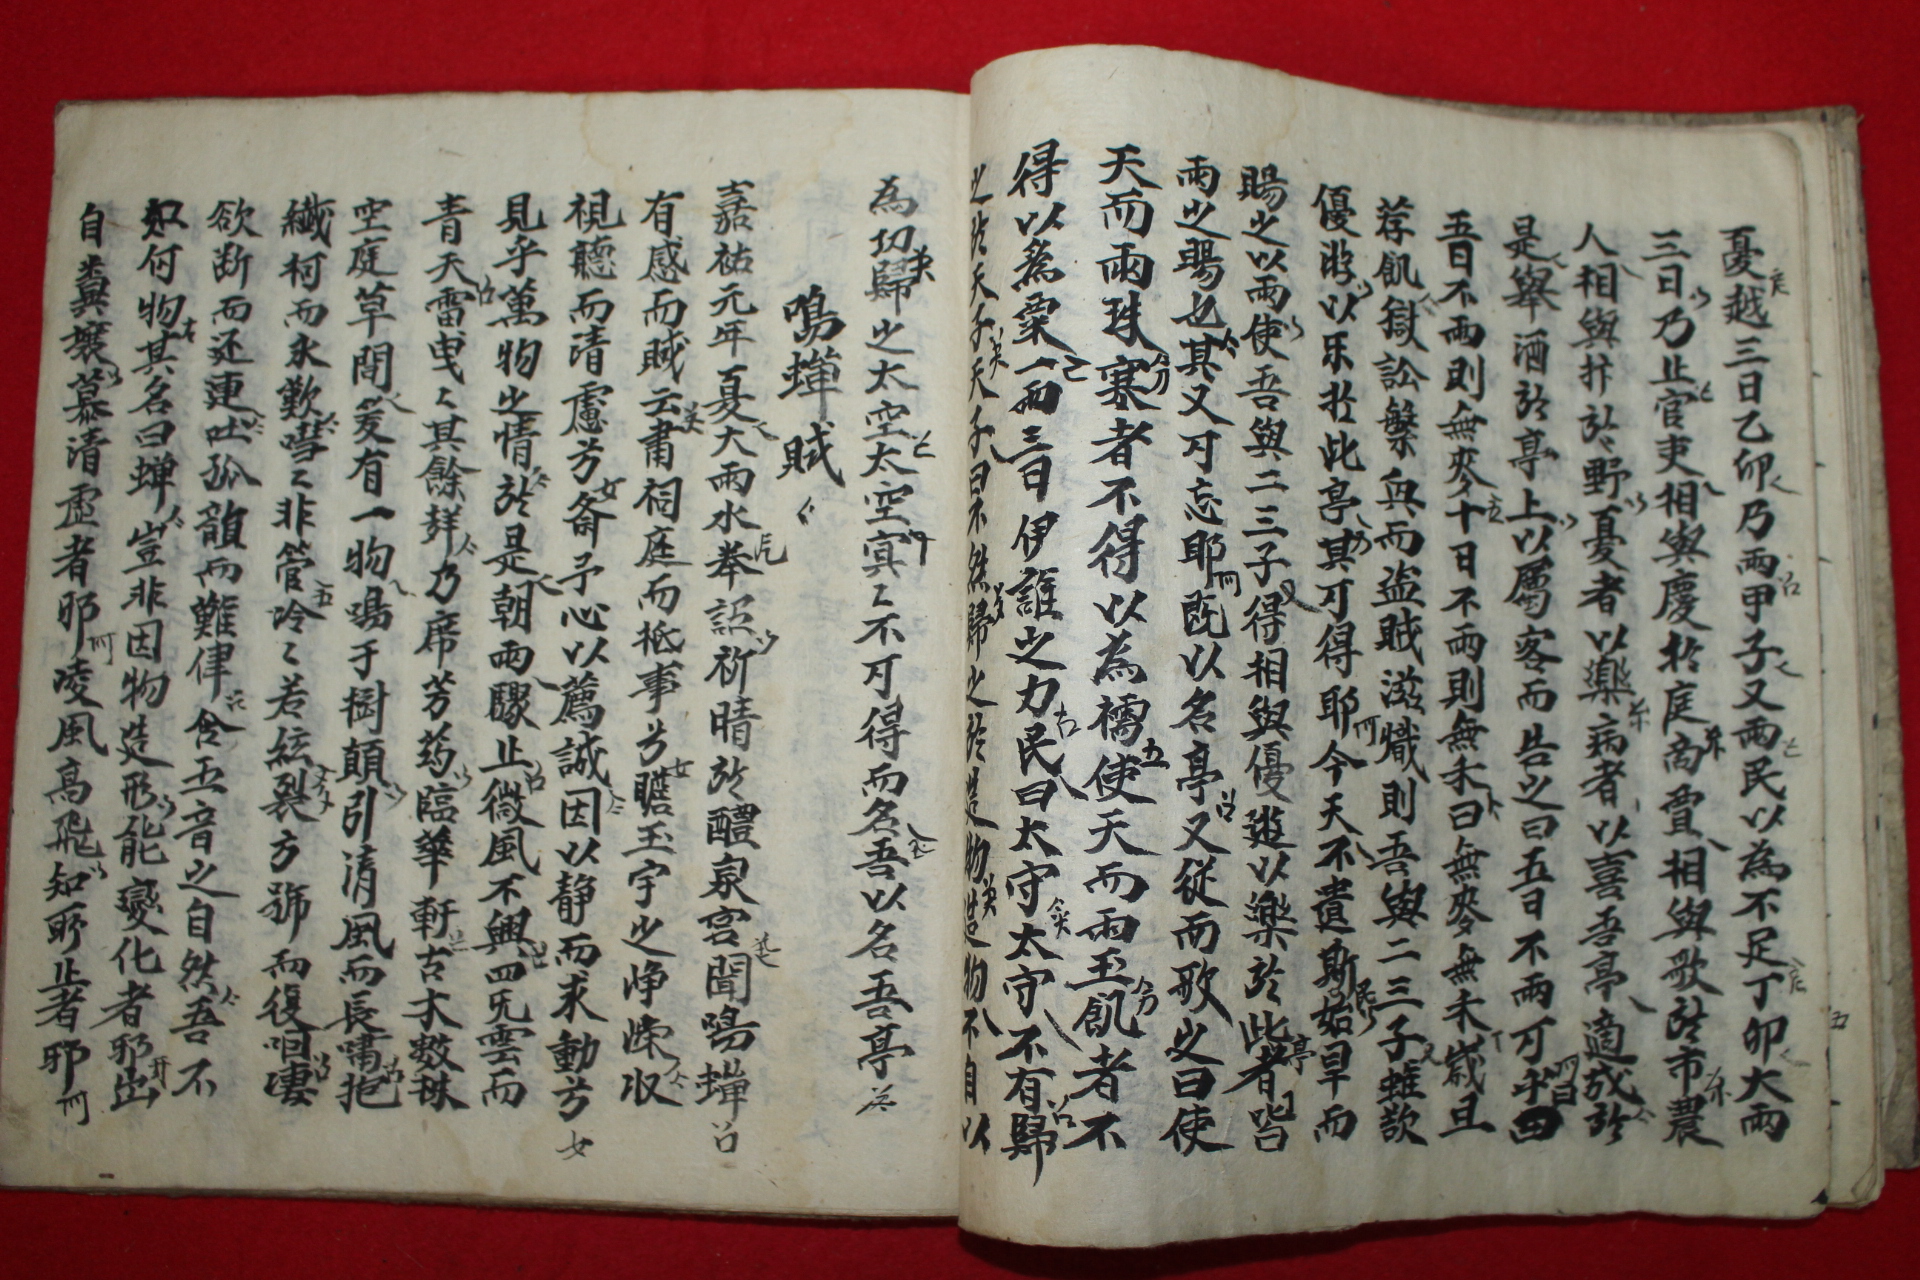 憂越三日乙卯乃雨甲子又雨民以為不足丁卯大雨
三日乃止官吏相與慶於庭商賈相與歌於市農
人相與抃於野憂者以樂病者以喜吾亭適成於
是舉酒於亭上以屬客而告之曰五日不雨可乎曰
五日不雨則無麥十日不雨則無禾曰無麥無禾歲且
荐飢獄訟繁興而盗賊滋熾則吾與二三子雖欲
優游以乐於此亭其可得耶今天不遺斯始旱而
賜之以雨使吾與二三子得相與優遊以樂於此者皆
雨之賜也其又可忘耶既以名亭又従而歌之曰使
天而雨珠寒者不得以為襦使天而雨玉飢者不
得以為粟一雨三日伊誰之力民曰太守太守不有歸
之於天子天子曰不然歸之於造物造物不自以
為功歸之太空太空冥〻不可得而名吾以名吾亭
鳴蟬賦
嘉祐元年夏大雨水奉詔祈晴於醴泉宮聞鳴蟬
有感而賦云肅祠庭而祗事兮瞻玉宇之崢嶸收
視聽而清慮兮齋予心以薦誠因以静而求動兮
見乎萬物之情於是朝雨驟止微風不興四无雲而
青天雷曳〻其餘聲乃席芳药臨華軒古木數株
空庭草間爰有一物鳴于樹顛引清風而長嘯抱
纖柯而永歎嘒〻非管泠〻若絃裂方號而復咽凄
欲断而还連吐孤韻而難律含五音之自然吾不
知何物其名曰蝉豈非因物造形能變化者邪出
自糞壤慕清虚者邪凌風高飛知所止者邪